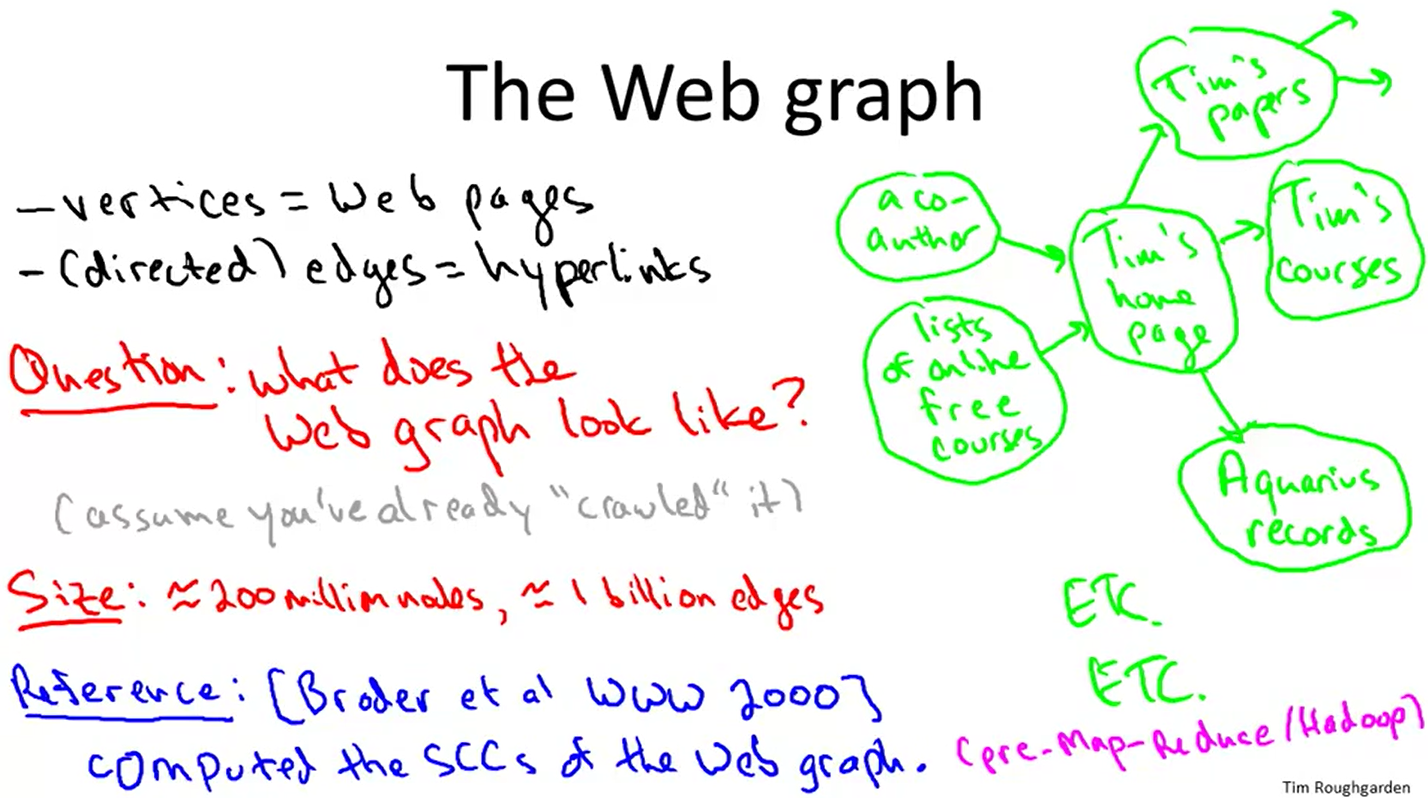 The Web graph
- vertices = Web pages
- (directed) edges = hyperlinks
Question: what does the
Web graph look like?
(assume you've already "crawled" it)
Size: ≈ 200 million nodes, ≈ 1 billion edges
Reference: [Broder et al WWW 2000]
computed the SCCs of the Web graph.
(pre-Map-Reduce/Hadoop)
Tim's
papers
a co-
author
Tim's
home
page
Tim's
courses
lists
of online
free
courses
Aquarius
records
ETC.
ETC.
Tim Roughgarden